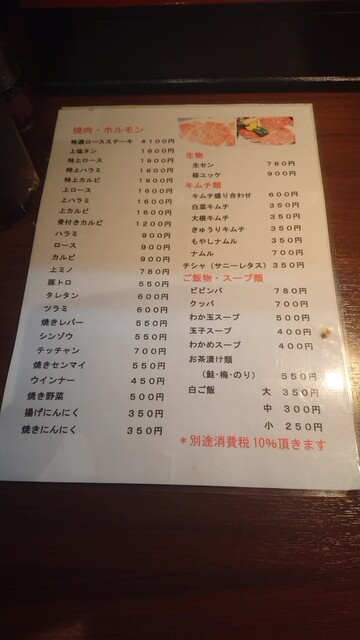 焼肉・ホルモン
特選ロースステーキ 4100円
上塩タン 1600円
特上ロース 1900円
特上ハラミ 1900円
特上カルビ 1900円
上ロース 1600円
上ハラミ 1600円
上カルビ 1600円
骨付きカルビ 1200円
ハラミ 900円
ロース 900円
カルビ 900円
上ミノ 780円
豚トロ 550円
タレタン 600円
ツラミ 600円
焼きレバー 550円
シンゾウ 550円
テッチャン 700円
焼きセンマイ 550円
ウインナー 450円
焼き野菜 500円
揚げにんにく 350円
焼きにんにく 350円
生物
生セン 780円
桜ユッケ 900円
キムチ類
キムチ盛り合わせ 600円
白菜キムチ 350円
大根キムチ 350円
きゅうりキムチ 350円
もやしナムル 350円
ナムル 700円
チシャ(サニーレタス) 350円
ご飯物・スープ類
ビビンバ 780円
クッパ 700円
わか玉スープ 500円
玉子スープ 400円
わかめスープ 400円
お茶漬け類
(鮭・梅・のり) 550円
白ご飯 大 350円
中 300円
小 250円
*別途消費税10%頂きます